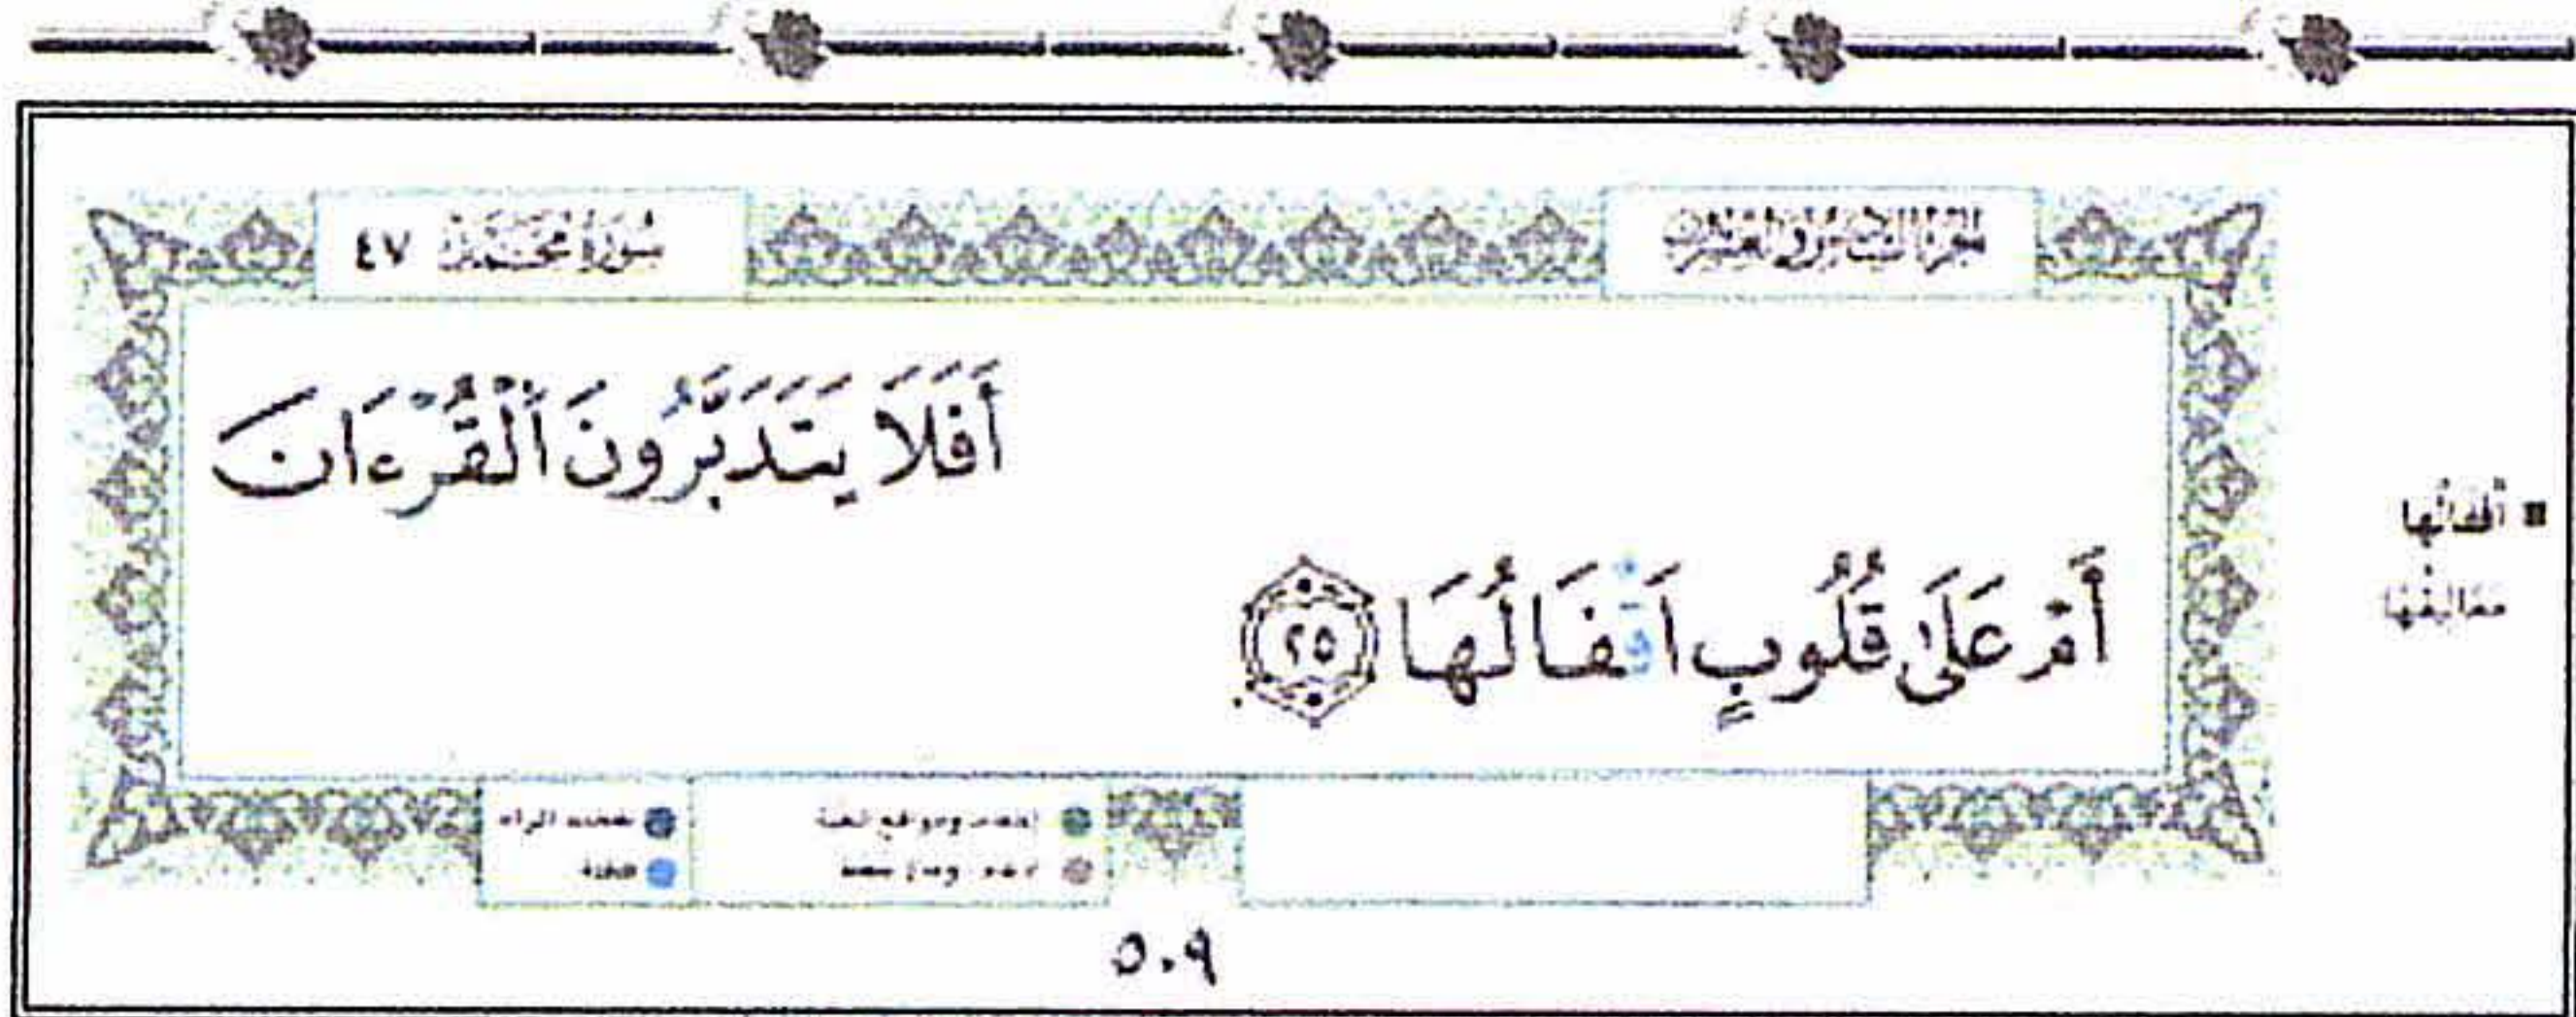 الجزء السادس والعشرون
سورة محمد ٤٧
أَفَلَا يَتَدَبَّرُونَ ٱلْقُرْءَانَ
أَمْ عَلَىٰ قُلُوبٍ اَقْفَالُهَا ٢٥
■ أقفالها
مغاليقها
تفخيم الراء
قلقلة
٥٠٩